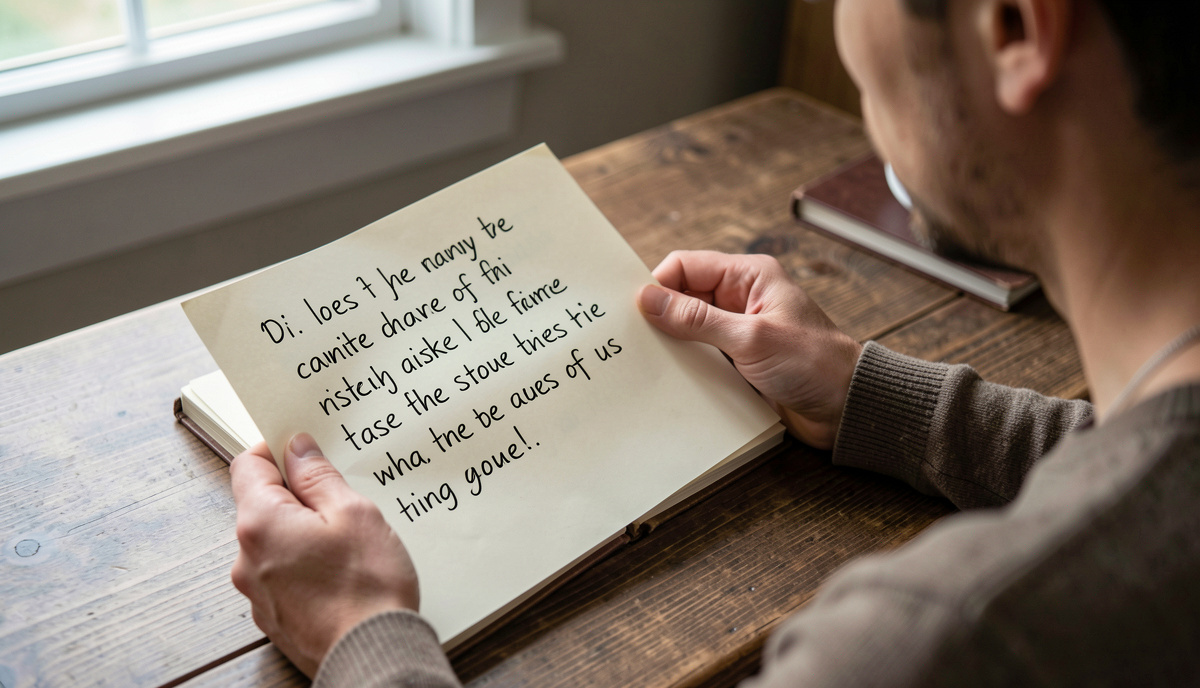 Di. loes t he namy tre
camite chare of fhi
risteily aiske l fle firme
tase the stoue thes tie
wha, the be aues of us
tiing goue!.